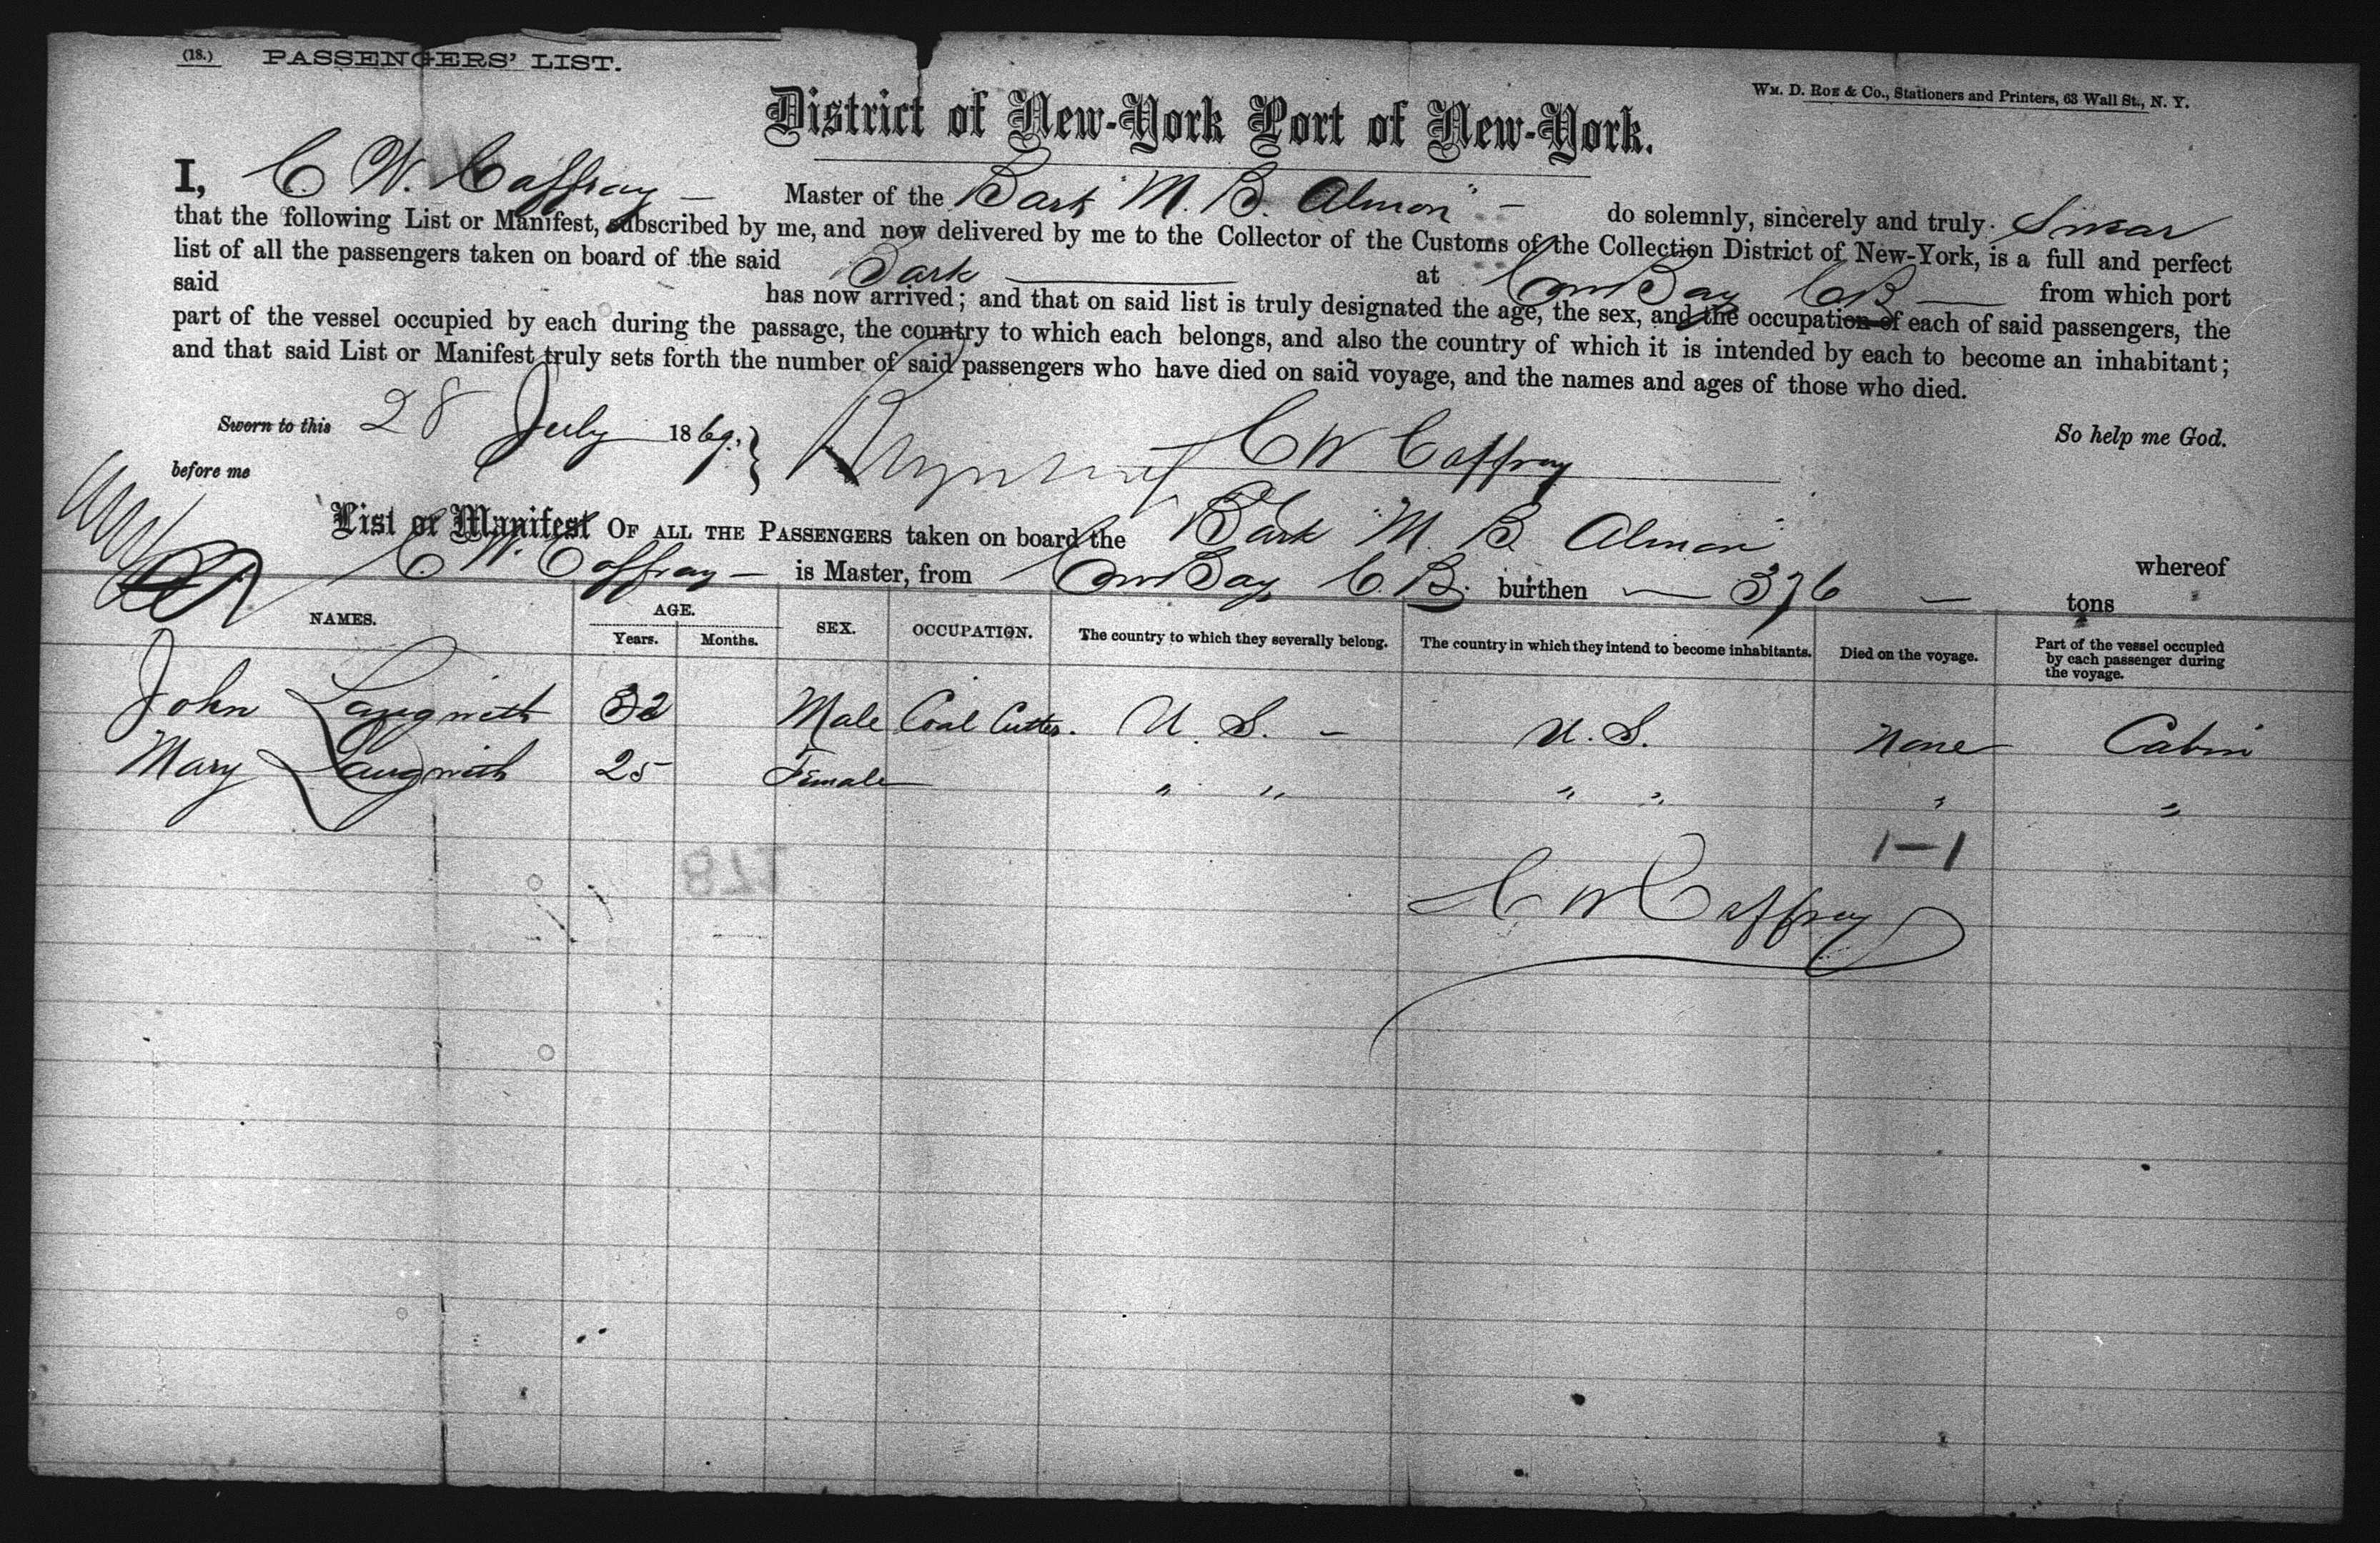 (18.) PASSENGERS' LIST.
WM. D. ROE & Co., Stationers and Printers, 63 Wall St., N. Y.
District of New-York Port of New-York.
I, C. W. Caffray — Master of the Bark "M. B. Almon" — do solemnly, sincerely and truly Swear
that the following List or Manifest, subscribed by me, and now delivered by me to the Collector of the Customs of the Collection District of New-York, is a full and perfect
list of all the passengers taken on board of the said Bark — at Cow Bay C B — from which port
said has now arrived; and that on said list is truly designated the age, the sex, and the occupation of each of said passengers, the
part of the vessel occupied by each during the passage, the country to which each belongs, and also the country of which it is intended by each to become an inhabitant;
and that said List or Manifest truly sets forth the number of said passengers who have died on said voyage, and the names and ages of those who died.
Sworn to this 28 July 1869. C W Caffray So help me God.
before me
List or Manifest OF ALL THE PASSENGERS taken on board the Bark "M. B. Almon" whereof
C. W. Caffray — is Master, from Cow Bay C. B. burthen — 376 — tons
NAMES. AGE. Years. Months. SEX. OCCUPATION. The country to which they severally belong. The country in which they intend to become inhabitants. Died on the voyage. Part of the vessel occupied by each passenger during the voyage.
John Langwith 32 Male Coal Cutter. U. S. — U. S. None Cabin
Mary Langwith 25 Female " " " " " "
1—1
C W Caffray
178